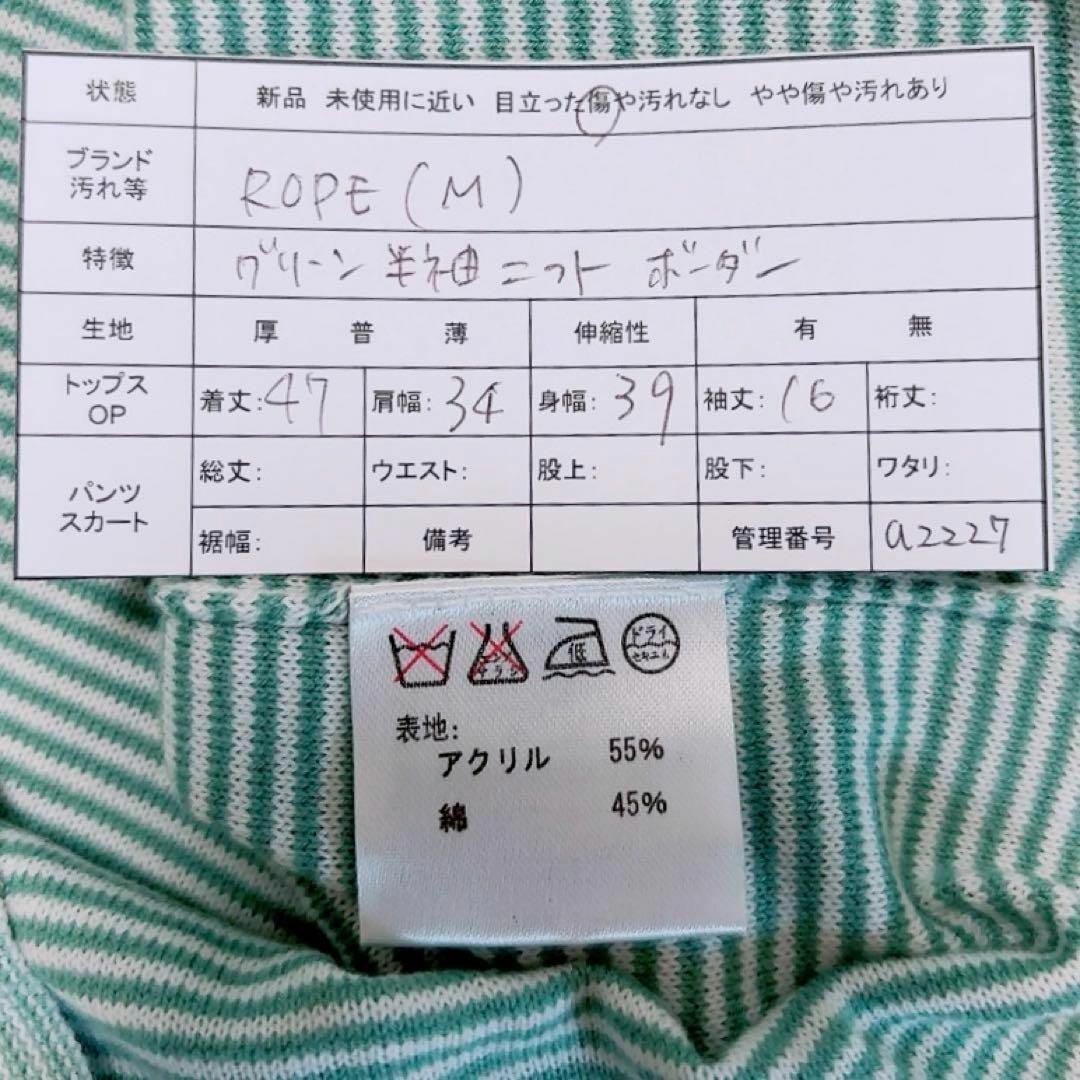 状態 新品 未使用に近い 目立った傷や汚れなし やや傷や汚れあり
ブランド
汚れ等 ROPE (M)
特徴 グリーン 半袖ニット ボーダー
生地 厚 普 薄 伸縮性 有 無
トップス
OP 着丈:47 肩幅:34 身幅:39 袖丈:16 裄丈:
パンツ
スカート 総丈: ウエスト: 股上: 股下: ワタリ:
裾幅: 備考 管理番号 a2227
エンソ
サラシ 低 ドライ
セキユ系
表地:
アクリル 55%
綿 45%